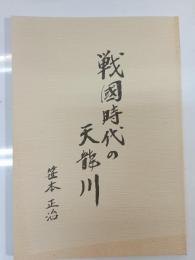 戦國時代の
天龍川
笹本正治